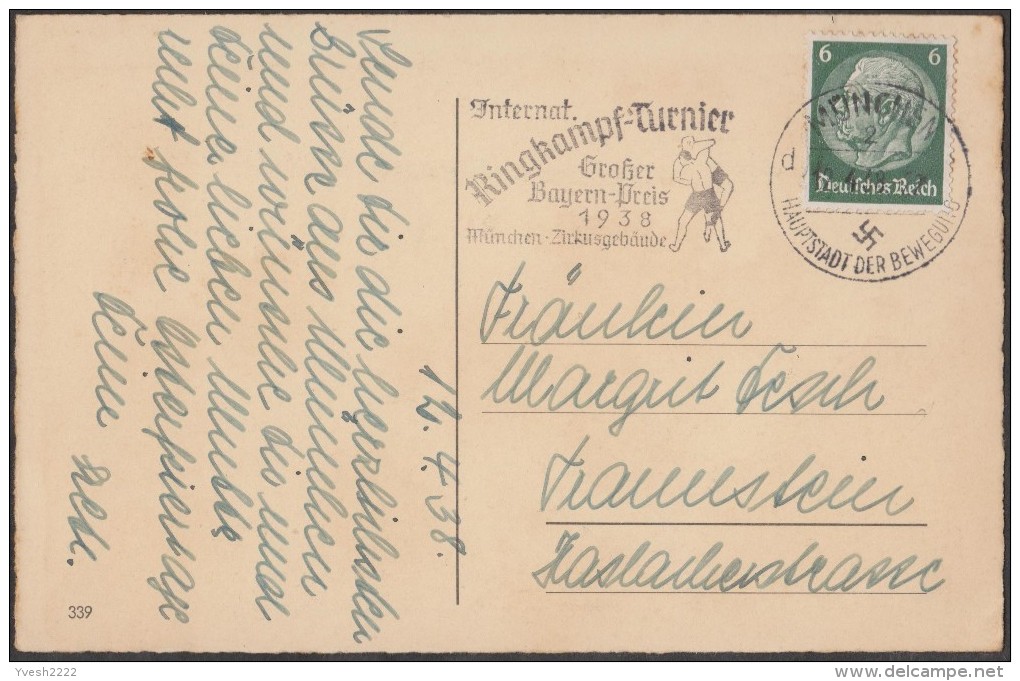 Sende dir die herzlichsten
Grüße aus München
und wünsche dir und
deiner lieben Mutter
recht frohe Osterfeiertage
Dein
12.4.38.
339
Internat.
Ringkampf-Turnier
Großer
Bayern-Preis
1938
München-Zirkusgebäude
6 6
Deutsches Reich
MÜNCHEN
2
d
HAUPTSTADT DER BEWEGUNG
Fräulein
Margrit
Traunstein
Haslacherstrasse
Yvesh2222
delcampe.net